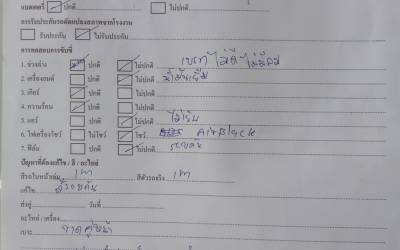 แบตเตรี่ ปกติ ไม่ปกติ
การรับประกันรถดัดแปลงสภาพจากโรงงาน
รับประกัน ไม่รับประกัน
การทดสอบการขับขี่
1. ช่วงล่าง ปกติ ไม่ปกติ เบรก ไม่ดี ไม่มีลม
2. เครื่องยนต์ ปกติ ไม่ปกติ น้ำมันซึม
3. เกียร์ ปกติ ไม่ปกติ
4. ความร้อน ปกติ ไม่ปกติ
5. แอร์ ปกติ ไม่ปกติ ไม่เย็น
6. ไฟเครื่องโชว์ ไม่โชว์ โชว์ AirBlack
7. ฟิล์ม ปกติ ไม่ปกติ รอบคัน
ปัญหาที่ต้องแก้ไข / สี / อะไหล่
สีรถในหน้าเล่ม เทา สีตัวรถจริง เทา
แก้ไข สีรอบคัน
ส่งคู่ วันที่
อะไหล่ / เครื่อง
เบาะ ขาดคู่หน้า